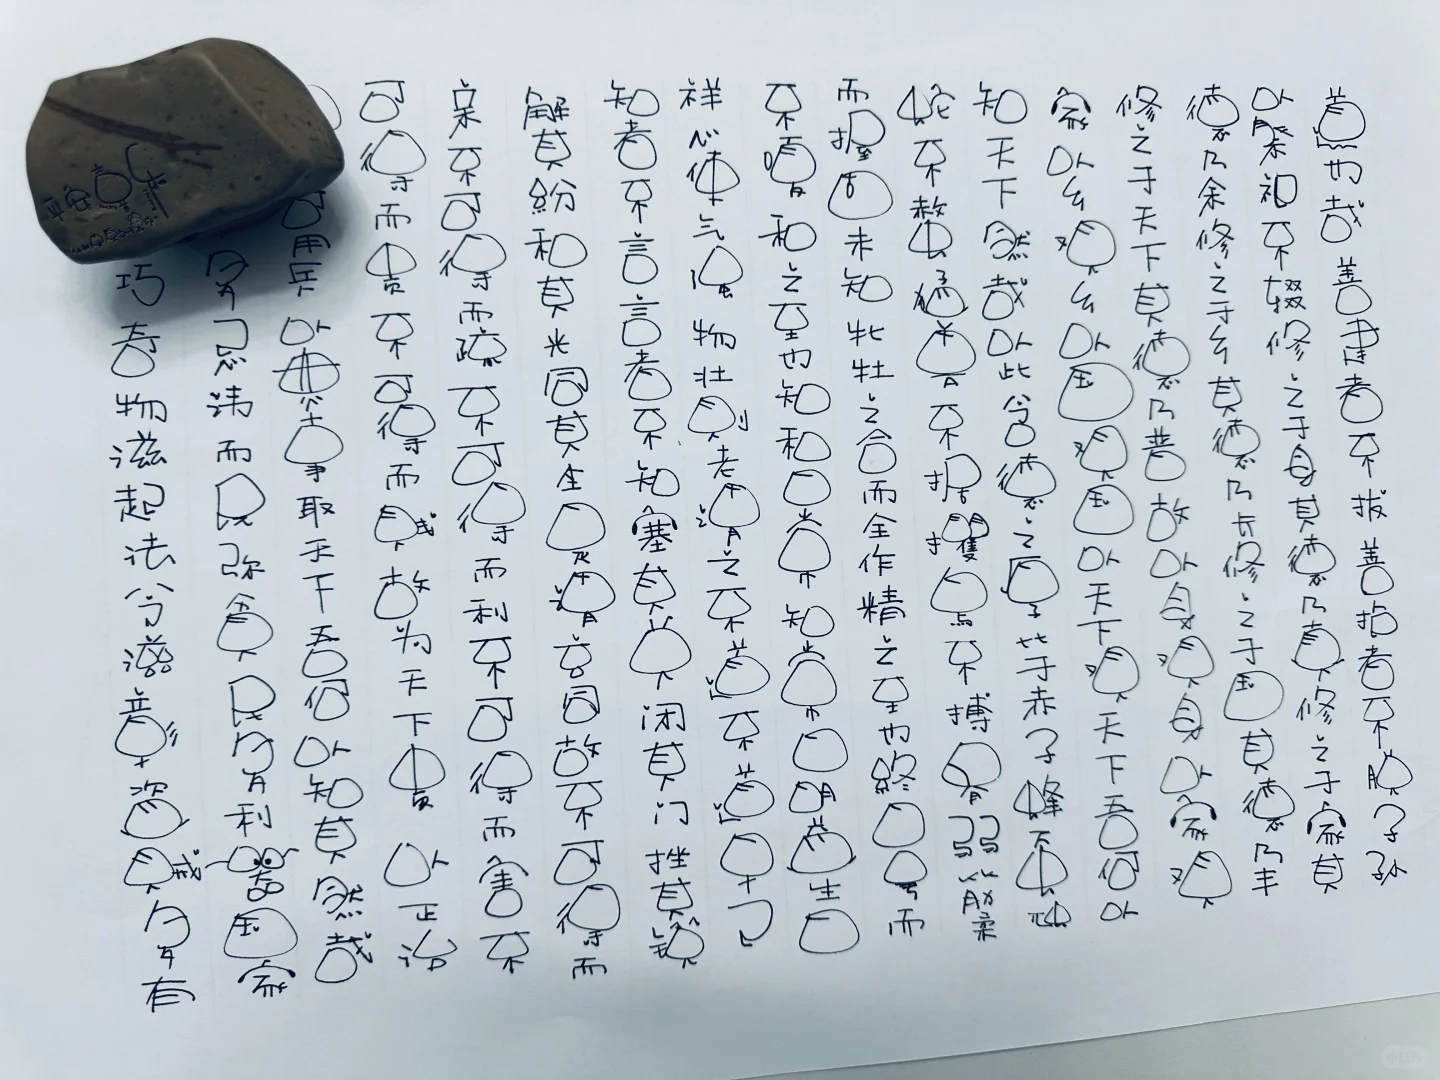 道也哉善建者不拔善抱者不脱子孙
以祭祀不辍修之于身其德乃真修之于家其
德乃余修之于乡其德乃长修之于国其德乃丰
修之于天下其德乃普故以身观身以家观
家以乡观乡以国观国以天下观天下吾何以
知天下然哉以此含德之厚比于赤子蜂虿虺
蛇不螫虫猛兽不据攫鸟不搏骨弱筋柔
而握固未知牝牡之合而全作精之至也终日号而
不嗄和之至也知和曰常知常曰明益生曰
祥心使气强物壮则老谓之不道不道早已
知者不言言者不知塞其兑闭其门挫其锐
解其纷和其光同其尘是谓玄同故不可得而
亲不可得而疏不可得而利不可得而害不
可得而贵不可得而贱故为天下贵以正治
用兵以無事取天下吾何以知其然哉
多忌讳而民弥贫民多利器国家
巧奇物滋起法令滋彰盗贼多有
平安喜乐